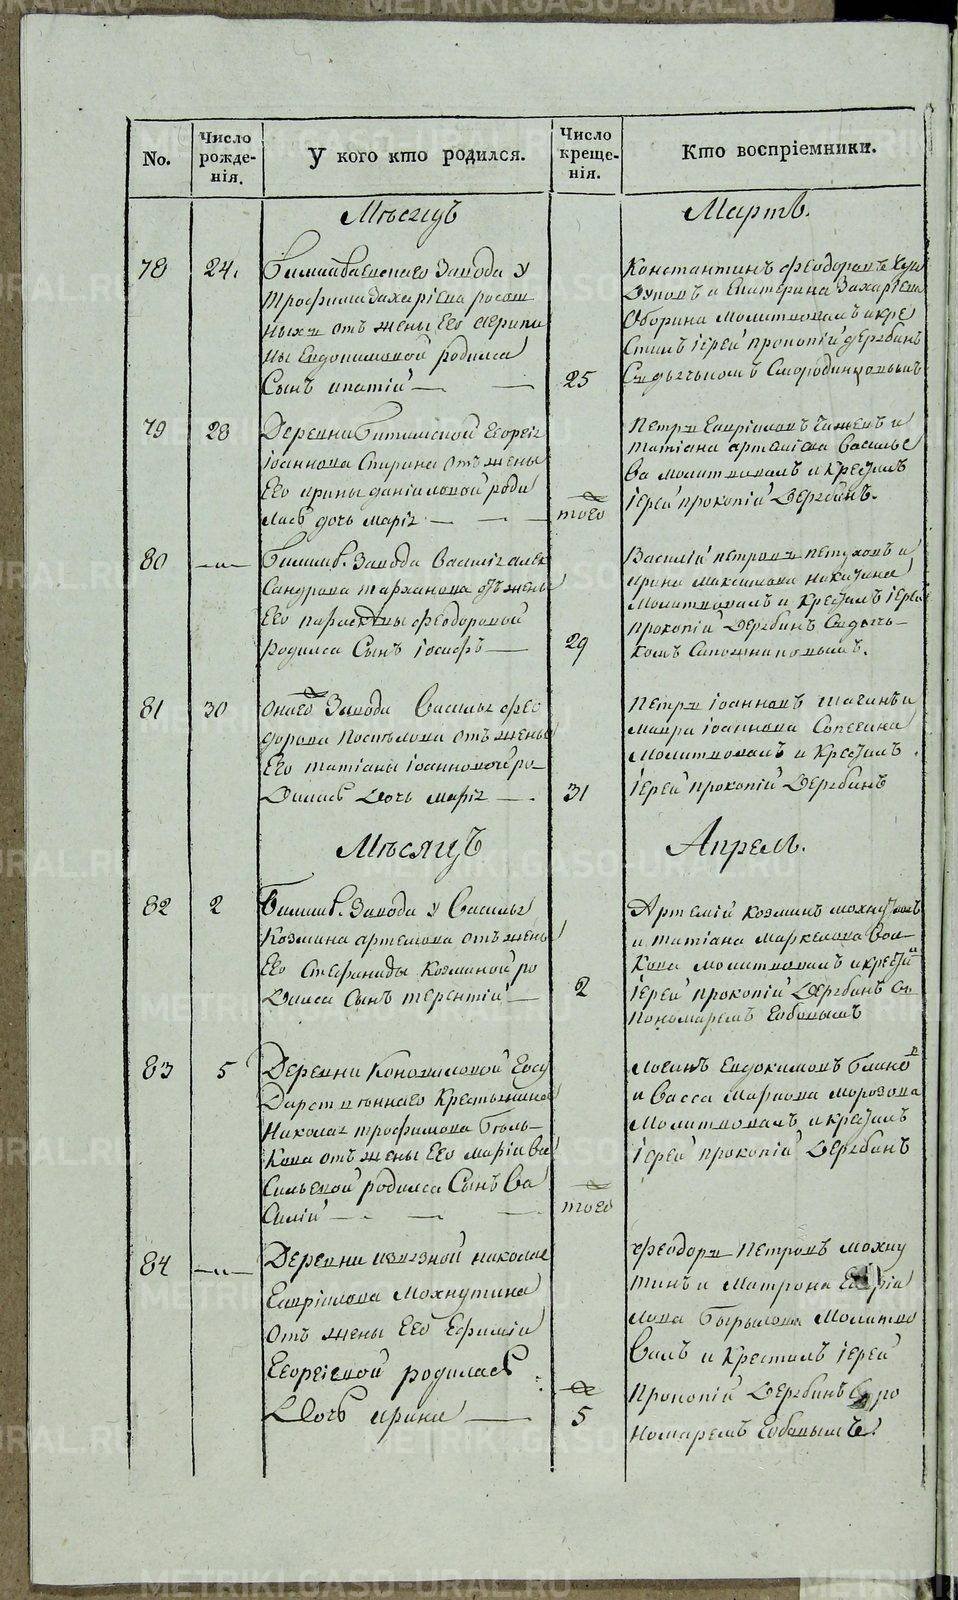 No.
Число рожде-нія.
У кого кто родился.
Число креще-нія.
Кто воспріемники.
Мѣсяцъ
Мартъ.
78 24.
Билимбаевскаго Завода у
Трофима Захаріева
отъ жены Его Агрипи
ны Евдокимовой родился
Сынъ ипатій
25
Константинъ Феодоровъ
и Екатерина Захаріева
Оборина Молитвовалъ и кре
стилъ іерей прокопій дерябинъ
Съ дьячькомъ Смородинцовымъ
79 28
Деревни Битимской Георгія
іоаннова Стирина отъ жены
Его ирины даніиловой роди
лась дочь марія
того
петръ Гавріиловъ и
татіана артемієва василье
ва молитвовалъ и крестилъ
іерей прокопій Дерябинъ.
80
Билимб. Завода Василія алек
сандрова тарханова отъ жены
Его параскевы феодоровой
родился Сынъ іосифъ
29
Василій петровъ петуховъ и
ирина максимова никитина
Молитвовалъ и крестилъ іерей
прокопій Дерябинъ Съ дьячь-
комъ Сапожниковымъ.
81 30
онаго Завода Василья фео
дорова Поспѣлова отъ жены
Его татіаны іоанновой ро-
дилась Дочь марія
31
Петръ іоанновъ и
мавра іоаннова
Молитвовалъ и крестилъ
іерей прокопій Дерябинъ
Мѣсяцъ
Апрель.
82 2
Билимб. Завода у Василья
Козмина артемова отъ жены
Его Стефаниды Козминой ро
дился Сынъ терентій
2
Артемій козминъ
и татіана маркелова вол-
кова молитвовалъ и крестил
іерей прокопій Дерябинъ Съ
пономаремъ
83 5
Деревни Коноваловой Госу
дарственнаго Крестьянина
Николая трофимова
отъ жены Его маріи ва
сильевой родился Сынъ Ва
силій
того
логинъ Евдокимовъ
и васса маркова морозова
Молитвовалъ и крестилъ
іерей прокопій Дерябинъ
84
Деревни извезной николая
Гавріилова Мохнутина
отъ жены Его Евфиміи
Георгіевой родилась
Дочь ирина
5
Феодоръ Петровъ мохну
тинъ и Матрона Гавріи
лова Молитво
валъ и крестилъ іерей
Прокопій Дерябинъ Съ по
номаремъ
METRIKI.GASO-URAL.RU